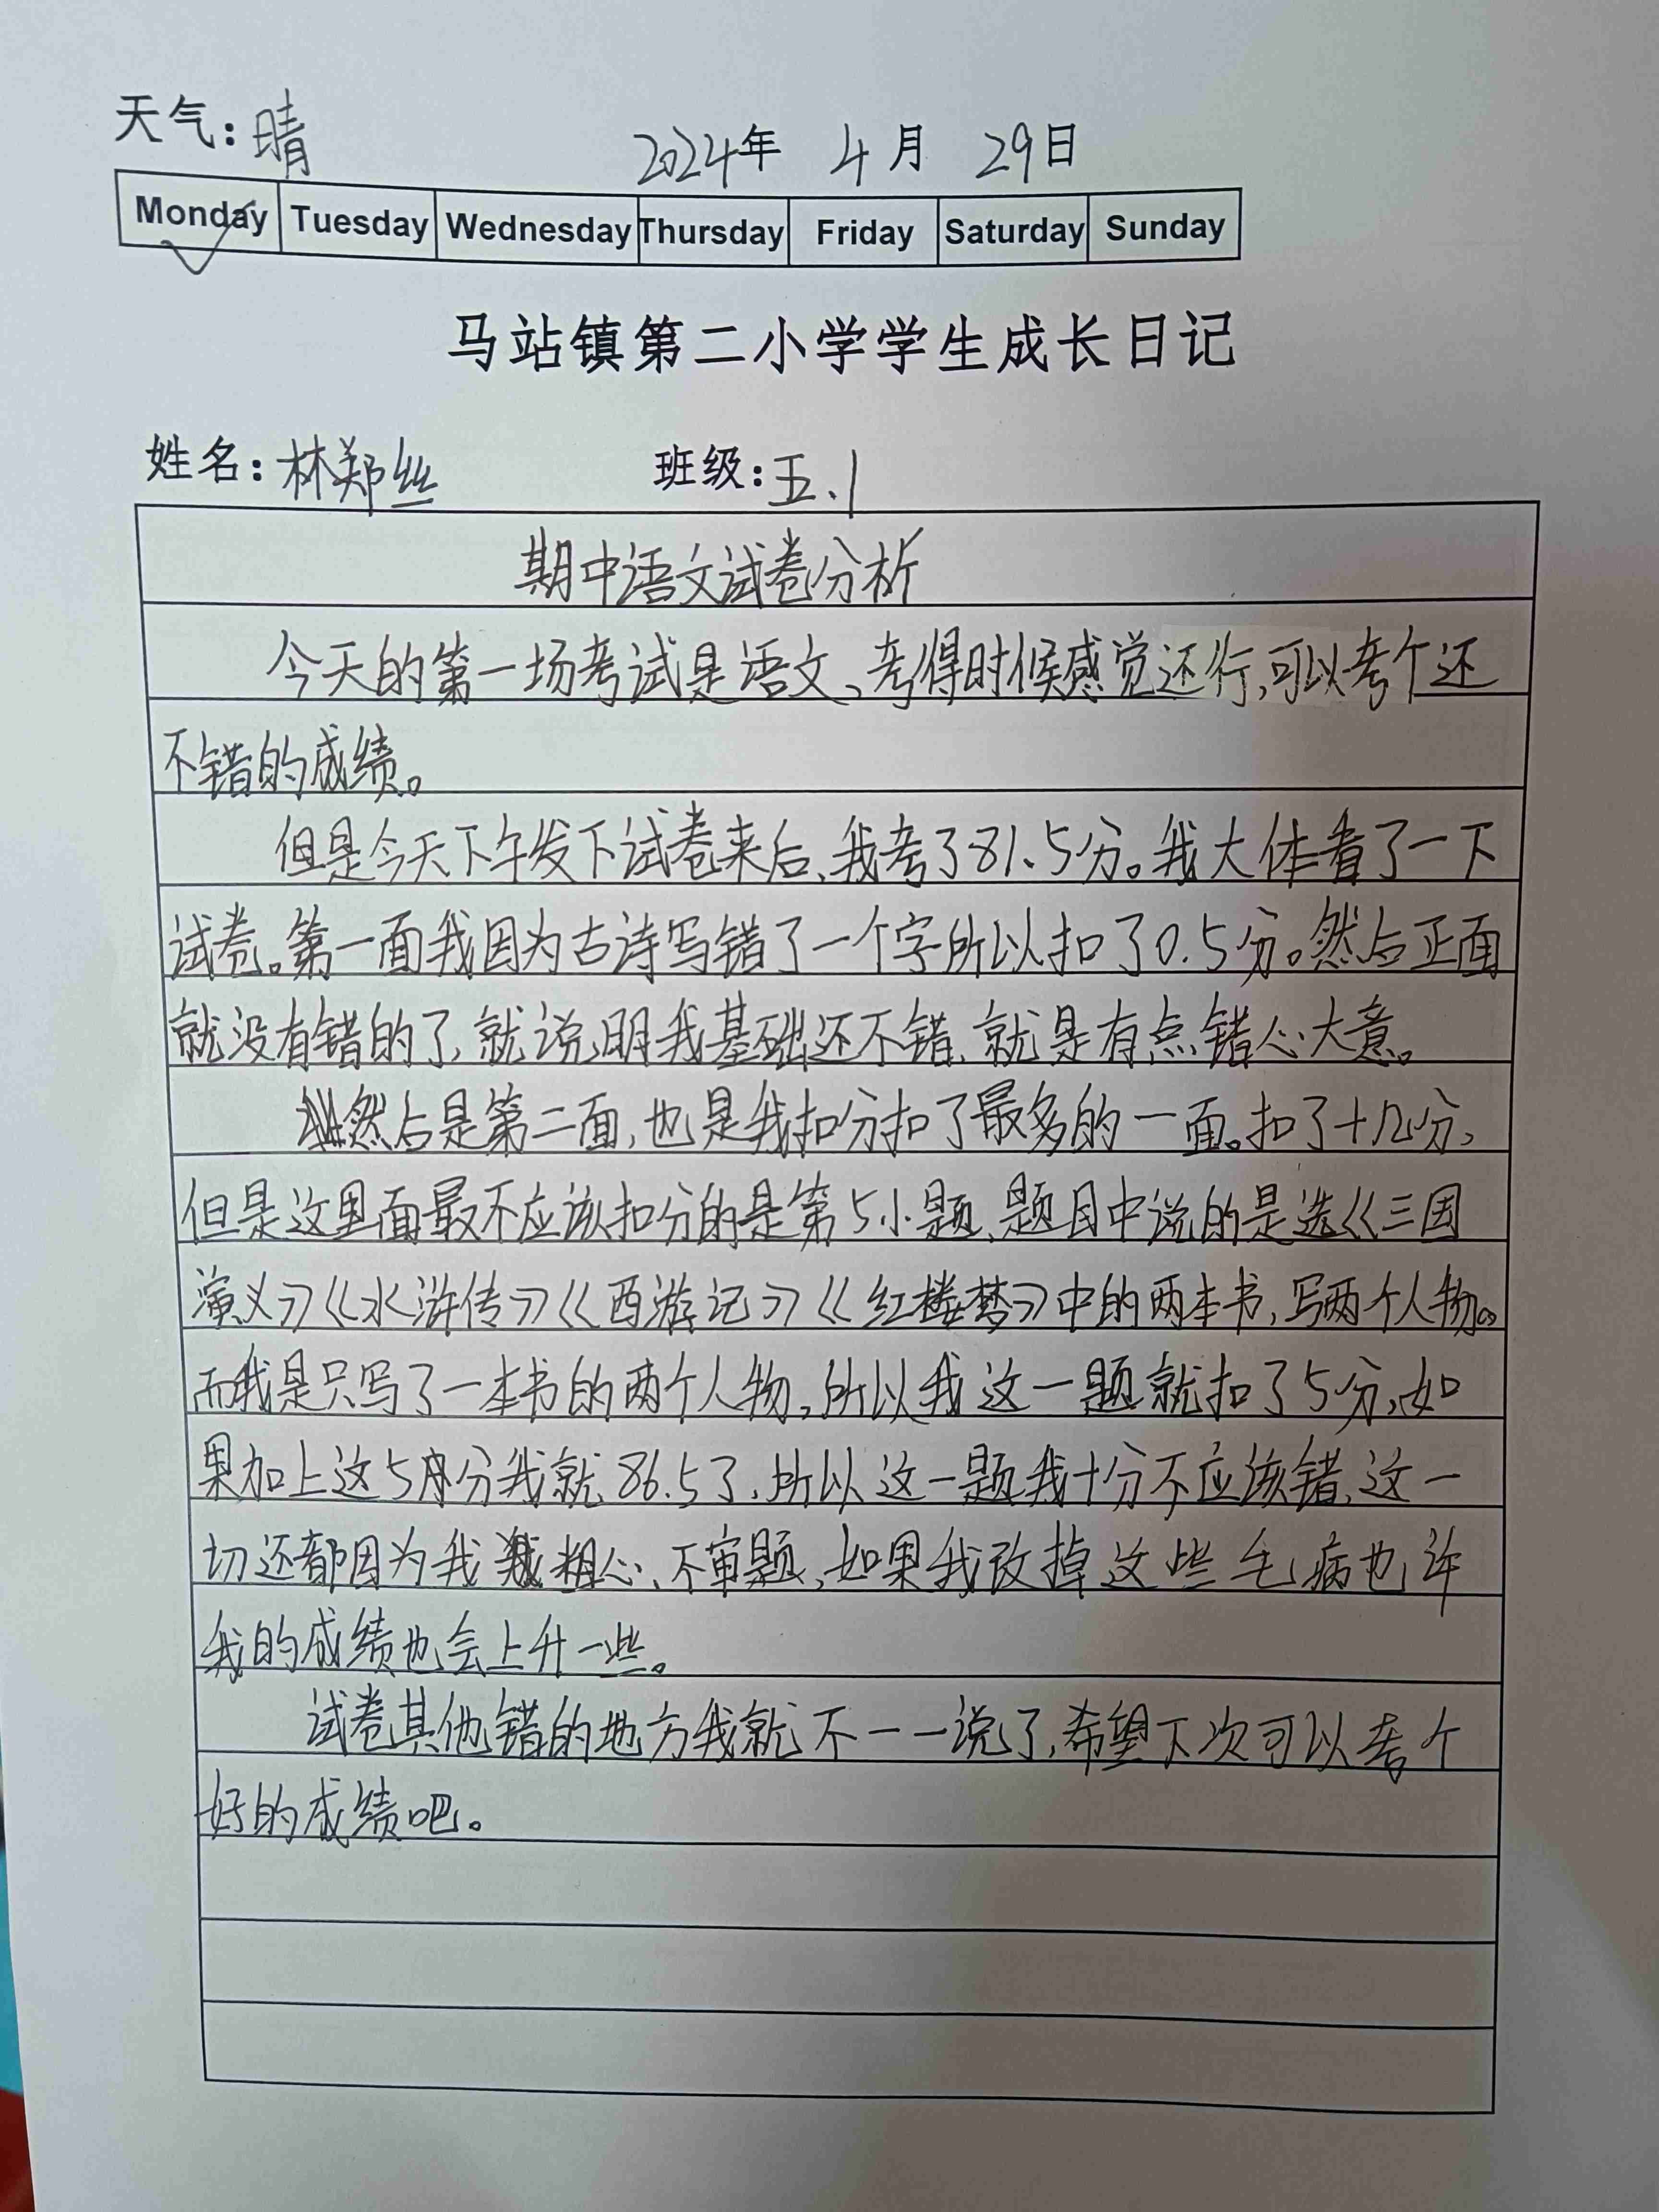 天气：晴
2024年 4月 29日
Monday Tuesday Wednesday Thursday Friday Saturday Sunday
马站镇第二小学学生成长日记
姓名：林郑丝 班级：五.1
期中语文试卷分析
今天的第一场考试是语文、考得时候感觉还行，可以考个还
不错的成绩。
但是今天下午发下试卷来后、我考了81.5分。我大体看了一下
试卷。第一面我因为古诗写错了一个字所以扣了0.5分。然后正面
就没有错的了、就说明我基础还不错、就是有点错心大意。
然后是第二面，也是我扣分扣了最多的一面。扣了十几分、
但是这里面最不应该扣分的是第5小题、题目中说的是选《三国
演义》《水浒传》《西游记》《红楼梦》中的两本书，写两个人物。
而我是只写了一本书的两个人物，所以我这一题就扣了5分，如
果加上这5分我就86.5了、所以这一题我十分不应该错、这一
切还都因为我粗心、不审题、如果我改掉这些毛病也许
我的成绩也会上升一些。
试卷其他错的地方我就不一一说了，希望下次可以考个
好的成绩吧。